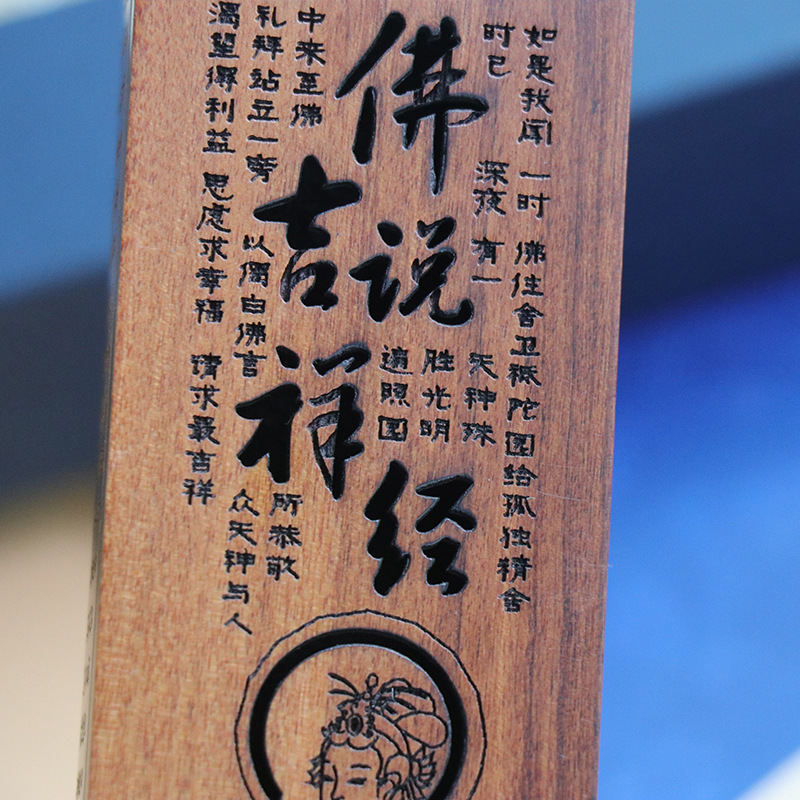 佛说吉祥经
如是我闻 一时 佛住舍卫祗陀园给孤独精舍
时已 深夜 有一 天神殊
胜光明
遍照园
中来至佛 所恭敬
礼拜站立一旁 以偈白佛言 众天神与人
渴望得利益 思虑求幸福 请求最吉祥